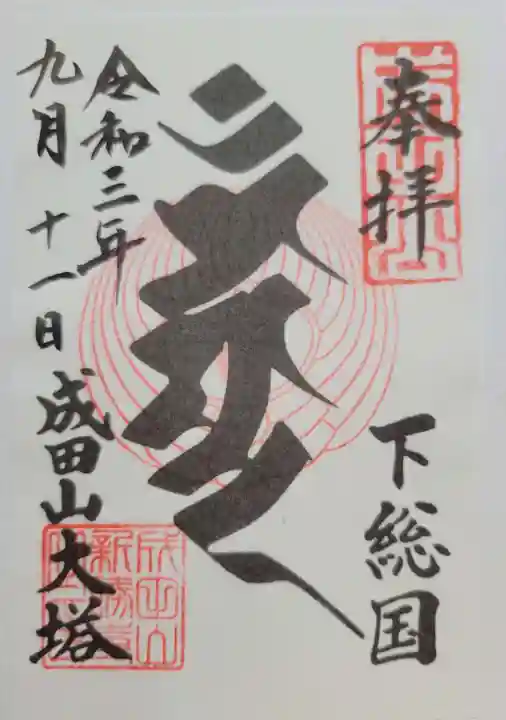 奉拝
下総国
令和三年
九月十一日
成田山大塔
成田山
新勝寺